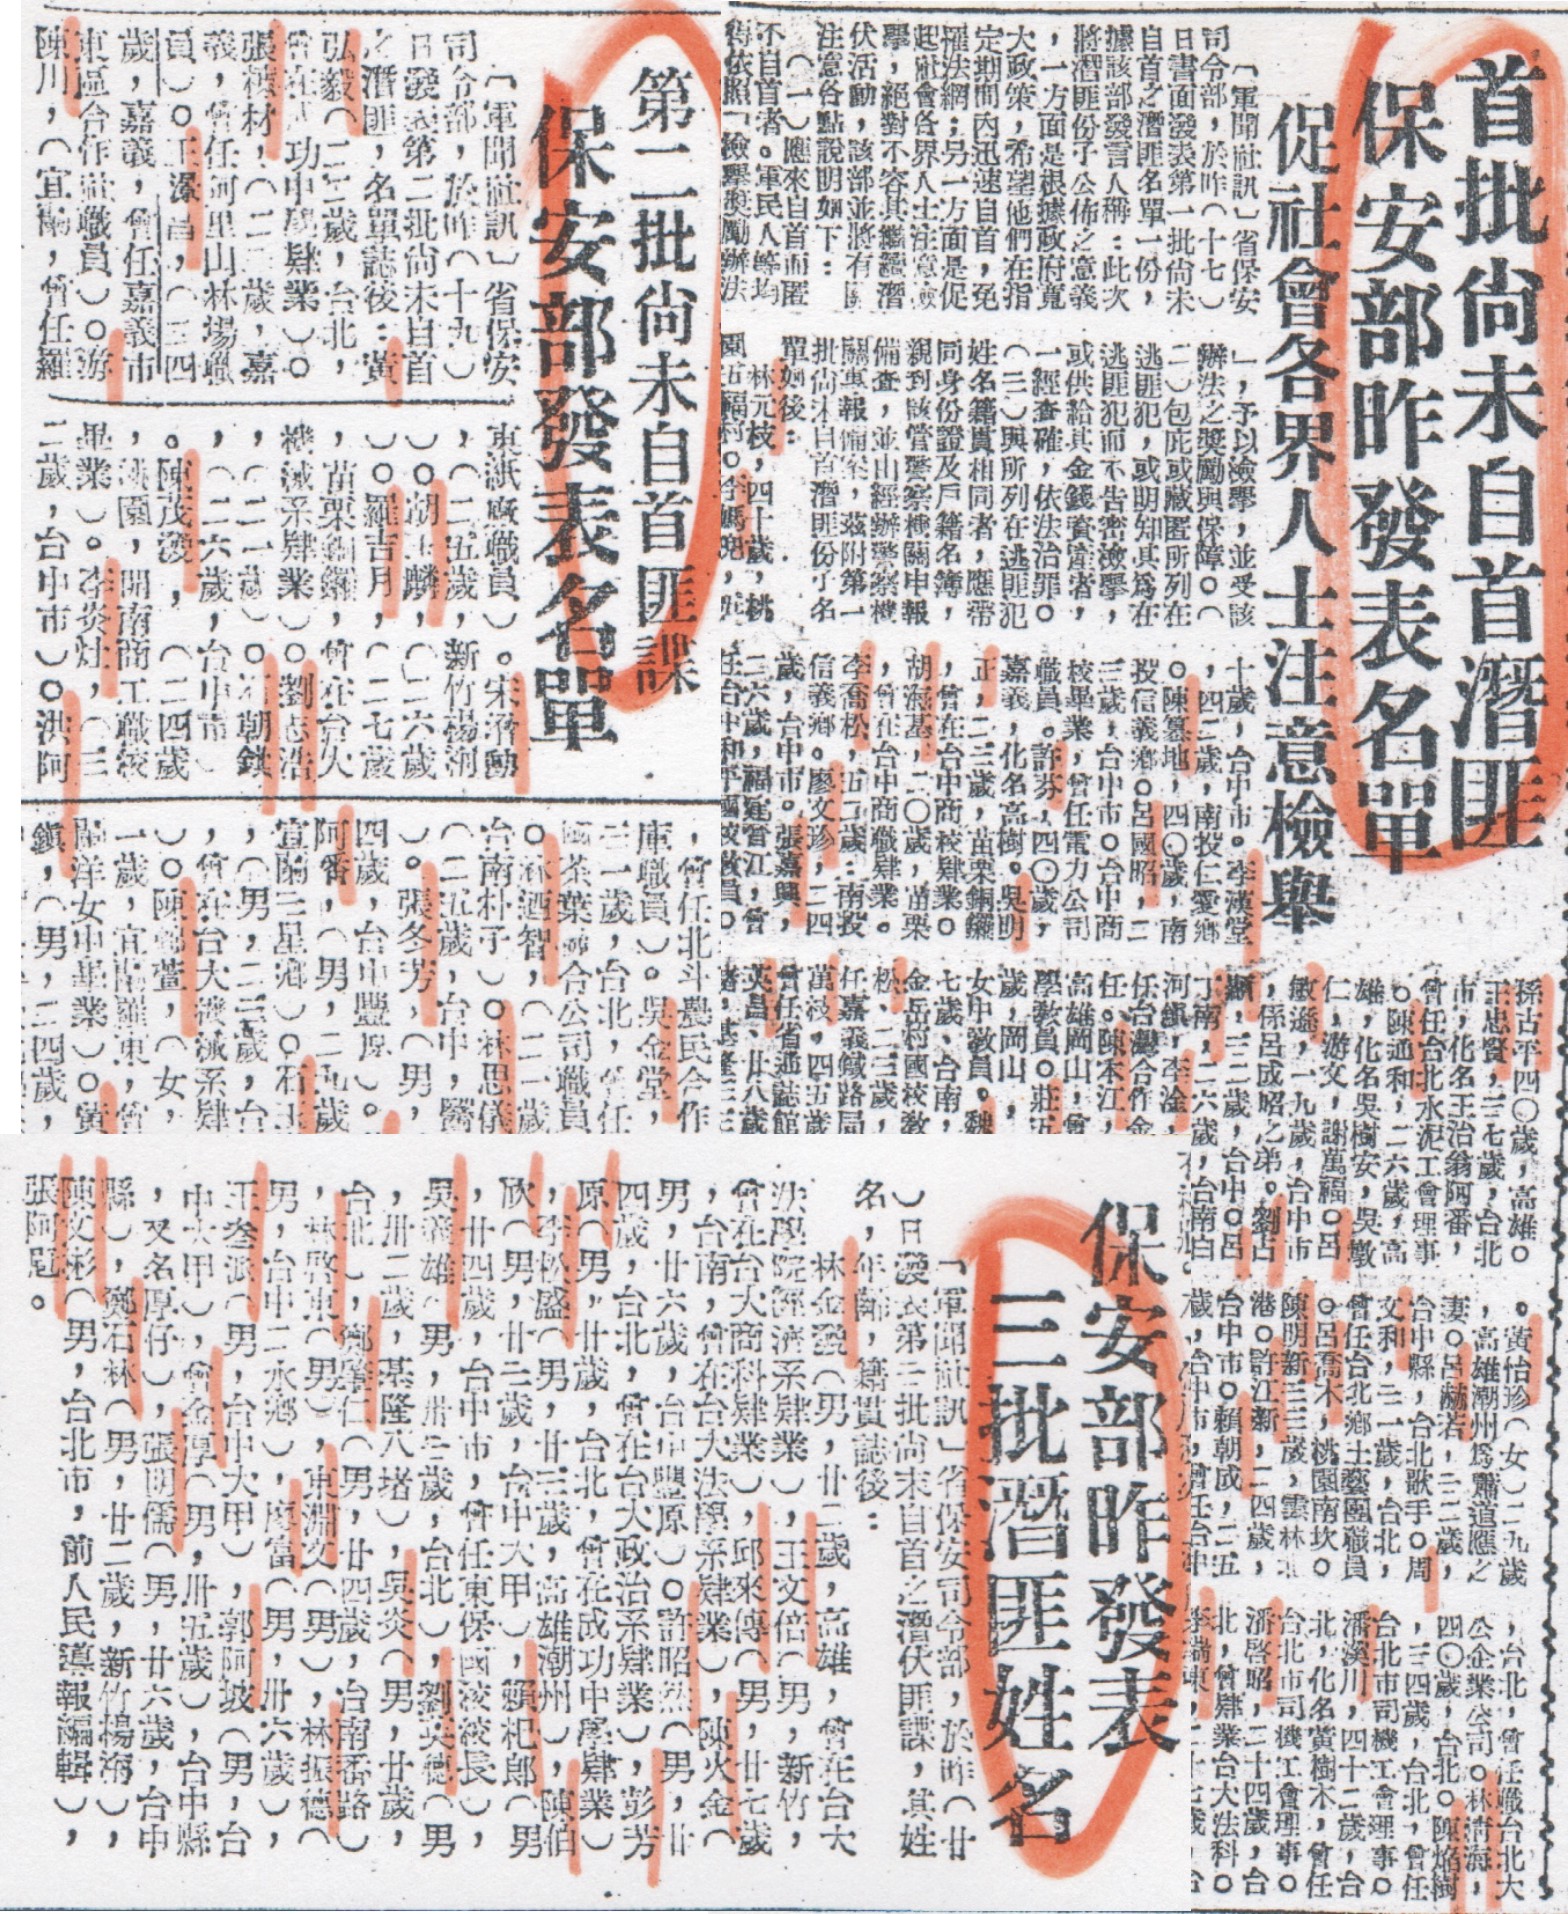 首批尚未自首潛匪
保安部昨發表名單
促社會各界人士注意檢舉
「軍聞社訊」省保安
司令部,於昨(十七)
日書面發表第一批尚未
自首之潛匪名單一份,
據該部發言人稱:此次
將潛匪份子公佈之意義
,一方面是根據政府寬
大政策,希望他們在指
定期間內迅速自首,免
罹法網;另一方面是促
起社會各界人士注意檢
舉,絕對不容其繼續潛
伏活動,該部並將有關
注意各點說明如下:
(一)應來自首而匿
不自首者。軍民人等均
得依照「檢舉獎勵辦法
」,予以檢舉,並受該
辦法之獎勵與保障。(
二)包庇或藏匿所列在
逃匪犯,或明知其爲在
逃匪犯而不告密檢舉,
或供給其金錢資產者,
一經查確,依法治罪。
(三)與所列在逃匪犯
姓名籍貫相同者,應帶
同身份證及戶籍名簿,
親到該管警察機關申報
備查,並由經辦警察機
關專報備案,茲附第一
批尚未自首潛匪份子名
單如後:
林元枝,四十歲,桃
園五福村。
十歲,台中市。李漢堂
,四二歲,南投仁愛鄉
。陳篡地,四〇歲,南
投信義鄉。呂國昭,二
三歲,台中市。台中商
校畢業,曾任電力公司
職員。許芬,四〇歲,
嘉義,化名高樹。吳明
正,二三歲,苗栗銅鑼
,曾在台中商校肄業。
胡海基,二〇歲,苗栗
,曾在台中商職肄業。
李喬松,五二歲:南投
信義鄉。廖文珍,二四
歲,台中市。張嘉興,
二六歲,福建晉江,曾
任台中和平國校教員。
孫古平四〇歲,高雄。
王忠賢,三七歲,台北
市,化名王治翁阿番,
曾任台北水泥工會理事
。陳通和,二六歲,高
雄,化名吳樹安,吳敏
仁,游文,謝萬福。呂
敏遜,一九歲,台中市
,係呂成昭之弟。劉占
顯,三二歲,台中。呂
丁南,二六歲,台南白
河鎮,李淦,
任台灣合作金
任。陳本江,
高雄岡山,曾
學教員。莊五
歲,岡山,
女中教員。魏
七歲、台南,
金岳村國校教
松、二三歲,
任嘉義鐵路局
萬枝,四五歲
曾任省通誌館
英昌、廿八歲
。黃怡珍(女)二九歲
,高雄潮州爲蕭道應之
妻。呂赫若,三二歲,
台中縣,台北歌手。周
文和,二一歲,台北,
曾任台北鄉土藝團職員
。呂喬木,桃園南坎。
陳明新三三歲,雲林北
港。許江新,二四歲,
台中市。賴朝成,二五
歲,台中市,曾任台中
,台北,曾任職台北大
公企業公司。林淸海,
四〇歲,台北。陳焰樹
,三四歲,台北,曾任
台北市司機工會理事。
潘溪川,四十二歲,台
北,化名黃樹木,曾任
台北市司機工會理事。
潘啓昭,二十四歲,台
北,曾肄業台大法科。
李瑞東,二十七歲,台
第二批尚未自首匪諜
保安部發表名單
「軍聞社訊」省保安
司令部,於昨(十九)
日發表第二批尚未自首
之潛匪,名單誌後:黃
弘毅(二三歲,台北,
曾在成功中學肄業)。
張棟材,(二三歲,嘉
義,曾任阿里山林場職
員)。王深昌,(三四
歲,嘉義,曾任嘉義市
東區合作社職員)。游
陳川,(宜蘭,曾任羅
東紙廠職員)。宋淸勳
,(二五歲,新竹楊湖
)。胡土麟,(二六歲
)。羅吉月,(二七歲
,苗栗銅鑼,曾在台大
機械系肄業)。劉志浩
,(二一歲)。石朝鎮
,(二六歲,台中市)
。陳茂燮,(二四歲
,桃園,開南商工職校
畢業)。李炎灶,(三
二歲,台中市)。洪阿
,曾任北斗農民合作
庫職員)。吳金堂,
三一歲,台北,曾任
區茶葉聯合公司職員
。林迺智,(二一歲
台南朴子)。林思儀
(二五歲,台中,醫
)。張冬芳,(男,
四歲,台中豐原)。
阿番,(男,二九歲
宜蘭三星鄉)。石玉
,(男,二三歲,台
,曾在台大機械系肄
)。陳却萱,(女,
一歲,宜蘭羅東,曾
蘭洋女中畢業)。黃
鎮,(男,二四歲,
保安部昨發表
三批潛匪姓名
「軍聞社訊」省保安司令部,於昨(廿
)日發表第三批尚未自首之潛伏匪諜,其姓
名,年齡,籍貫誌後:
林金發(男,廿二歲,高雄,曾在台大
法學院經濟系肄業),王文倍(男,新竹,
曾在台大商科肄業),邱來傳(男,廿七歲
,台南,曾在台大法學系肄業),陳火金(
男,廿六歲,台中豐原)。許昭然(男,廿
四歲,台北,曾在台大政治系肄業),彭芳
原(男,廿歲,台北,曾在成功中學肄業)
,李松盛(男,廿三歲,高雄潮州),陳伯
欣(男,廿二歲,台中大甲),賴杞郎(男
,廿四歲,台中市,曾任東保國校校長)。
吳義雄(男,卅三歲,台北),劉英德(男
,卅二歲,基隆八堵),吳炎(男,廿歲,
台北),鄭肇仁(男,廿四歲,台南番路)
,林啓東(男),東淵文(男),林振德(
男,台中二水鄉),廖富(男,卅六歲),
王叁派(男,台中大甲),郭阿坡(男,台
中大甲),曾金厚(男,卅五歲),台中縣
,又名厚仔),張明儒(男,廿六歲,台中
縣),鄭石林(男,廿二歲,新竹楊湖),
陳文彬(男,台北市,前人民導報編輯),
張阿冠。